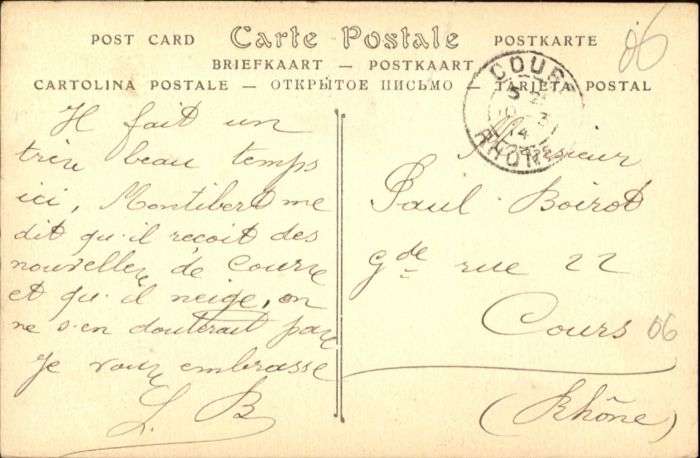 Carte Postale
POST CARD
POSTKARTE
BRIEFKAART — POSTKAART
CARTOLINA POSTALE — ОТКРЫТОЕ ПИСЬМО — TARJETA POSTAL
06
COURS
14
RHONE
Il fait un
très beau temps
ici, Montibert me
dit qu'il reçoit des
nouvelles de Cours
et qu'il neige, on
ne s'en douterait pas
Je vous embrasse
L. B
Monsieur
Paul Boirot
Gde rue 22
Cours 06
(Rhône)